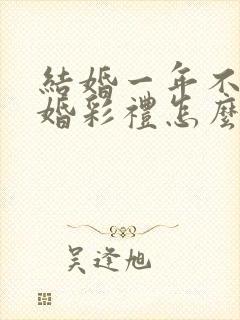 結婚一年不
婚彩禮怎麼
吳逢旭